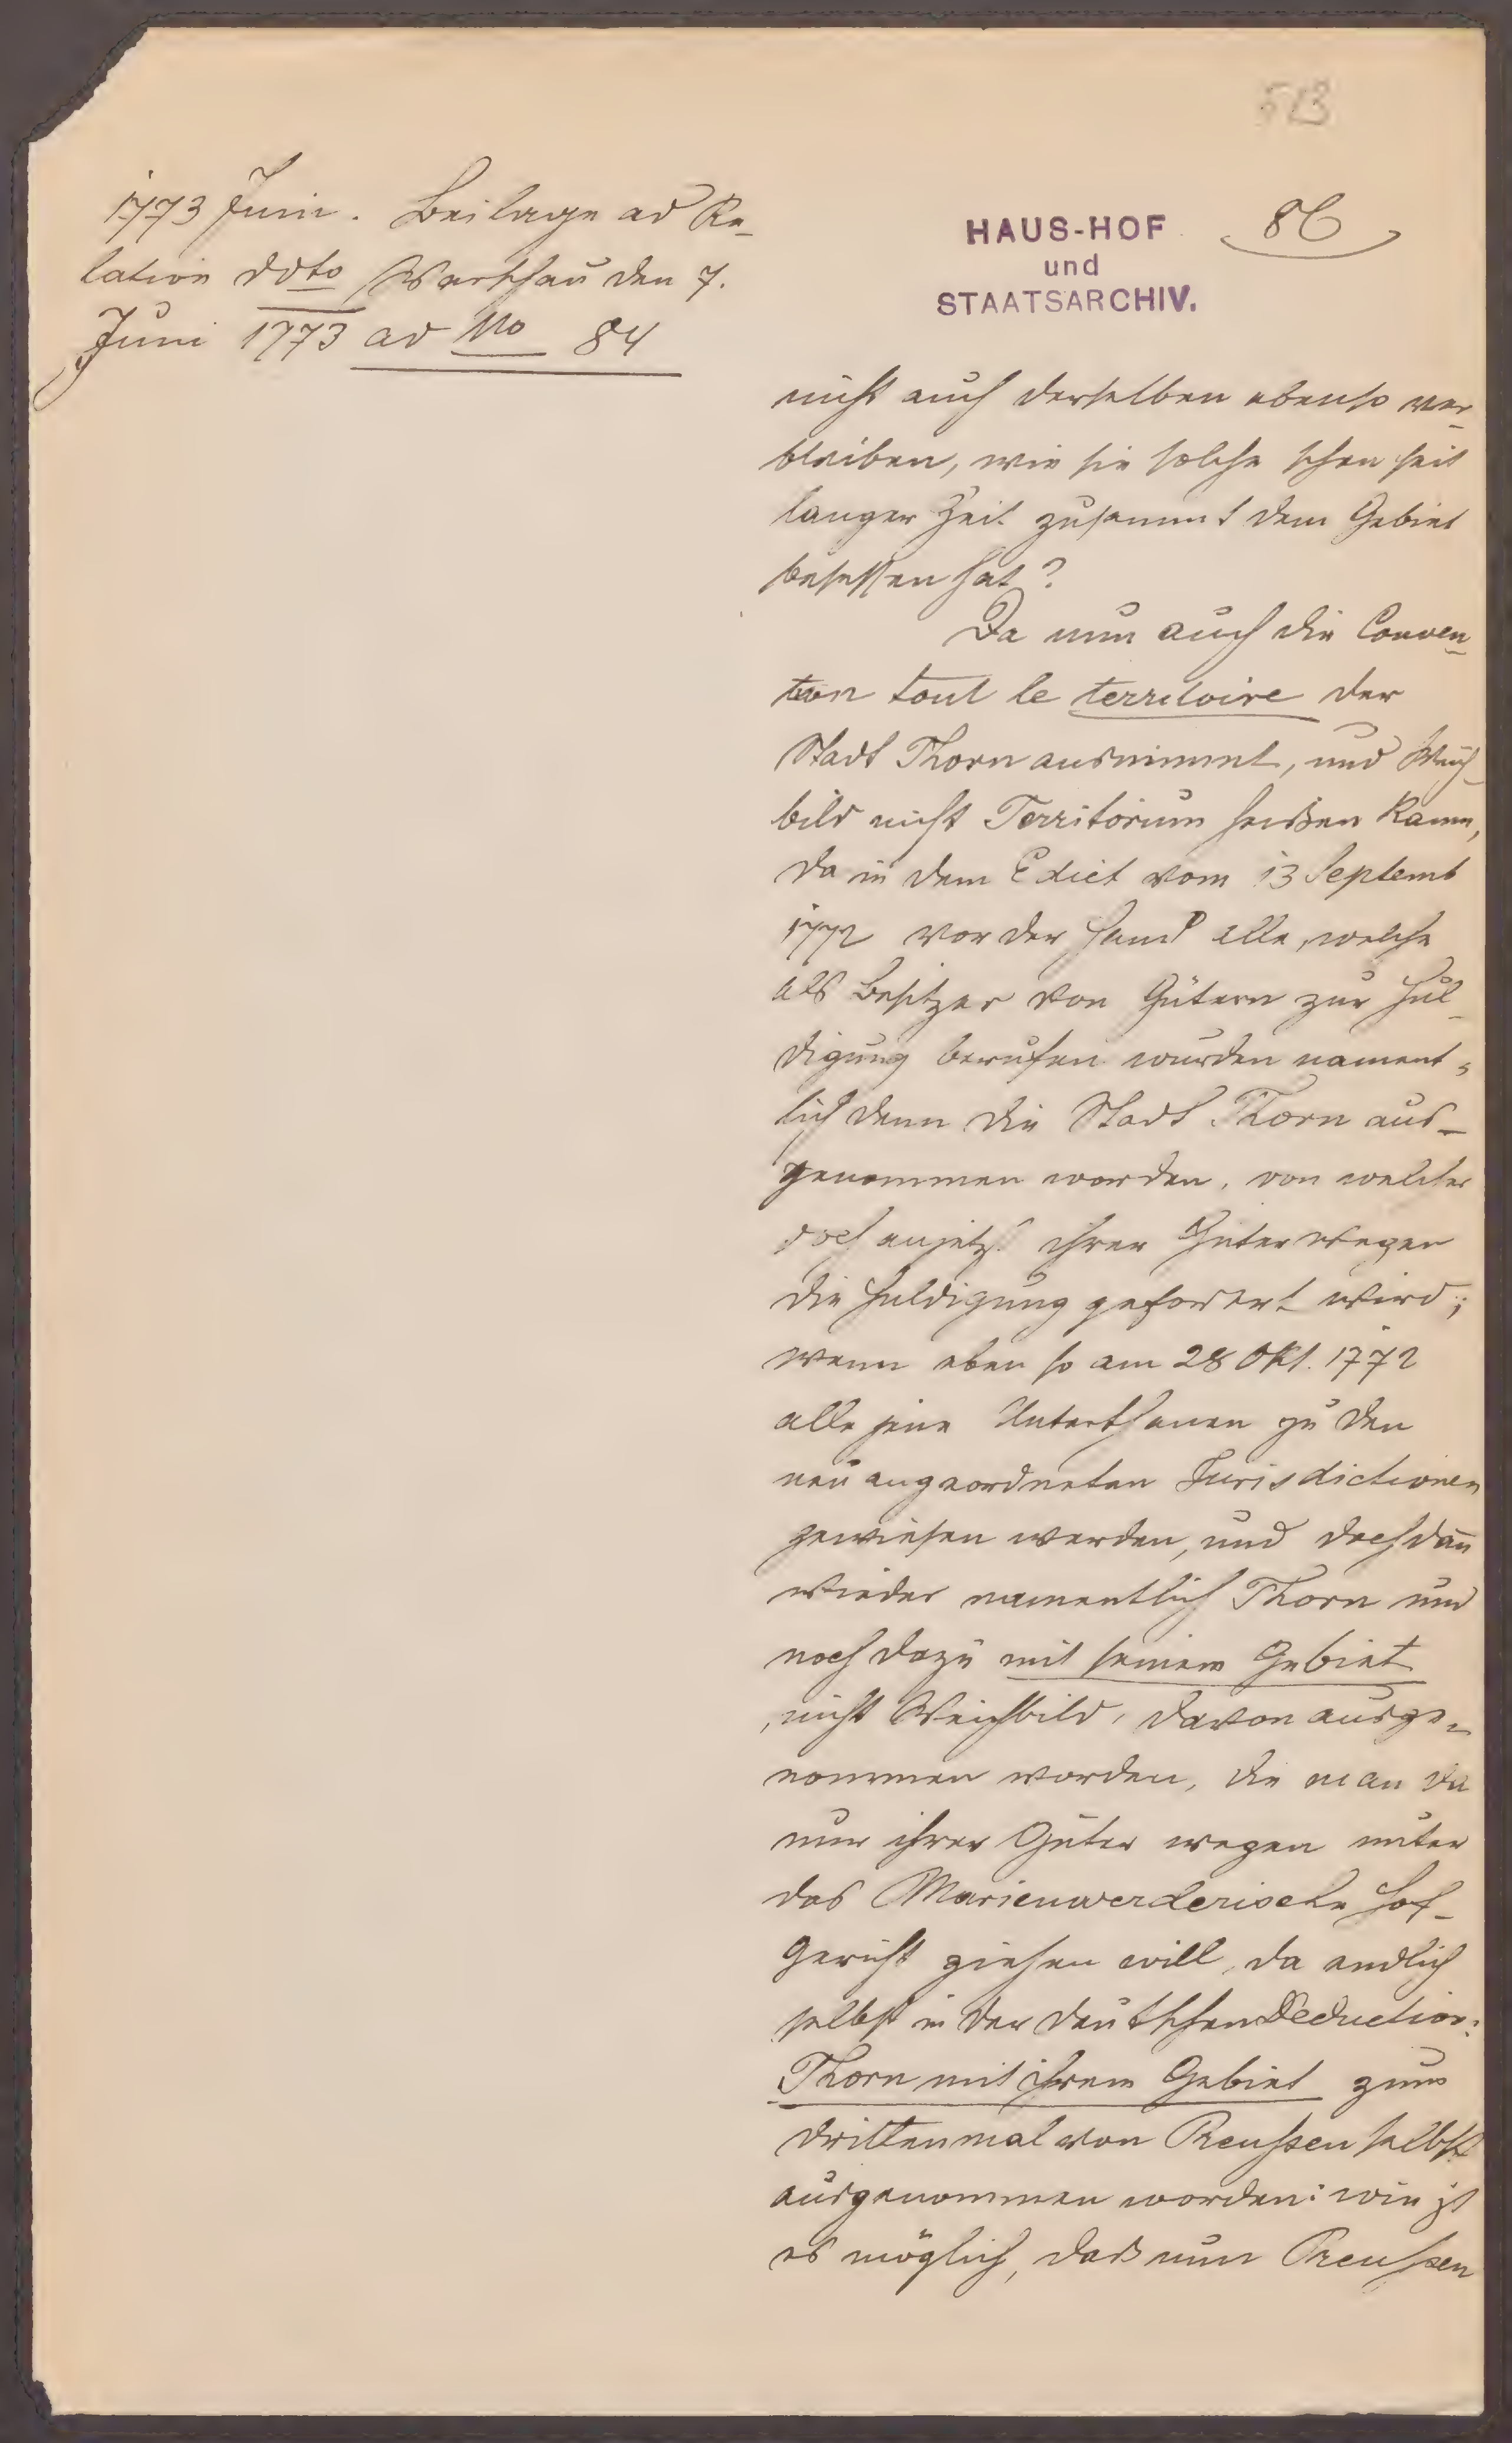 513
1773 Juni. Beilage ad Re-
lation ddto Warschau den 7.
Juni 1773 ad No 84
HAUS-HOF
und
STAATSARCHIV.
86
nicht auch derselben ebenso ver-
bleiben, wie sie solche schon seit
langer Zeit zusammt dem Gebiet
besessen hat?
Da nun auch die Conven-
tion tout le territoire der
Stadt Thorn ausnimmt, und Weich-
bild nicht Territorium heißen kann,
da in dem Edict vom 13 Septemb
1772 vor der Hand alle, welche
als Besitzer von Gütern zur Hul-
digung berufen wurden nament-
lich denn die Stadt Thorn aus-
genommen worden, von welcher
doch anjetzt ihrer Güter wegen
die Huldigung gefordert wird;
wenn eben so am 28 Okt. 1772
alle jene Unterthanen zu den
neu angeordneten Jurisdictionen
gewiesen werden, und doch dan̄
wieder namentlich Thorn und
noch dazu mit seinem Gebiet
, nicht Weichbild, davon ausge-
nommen worden, die man da
nur ihrer Güter wegen unter
das Marienwerderische Hof-
gericht ziehen will, da endlich
selbst in der deutschen Deduction:
Thorn mit ihrem Gebiet zum
drittenmal von Preußen selbst
ausgenommen worden: wie ist
es möglich, daß nun Preußen